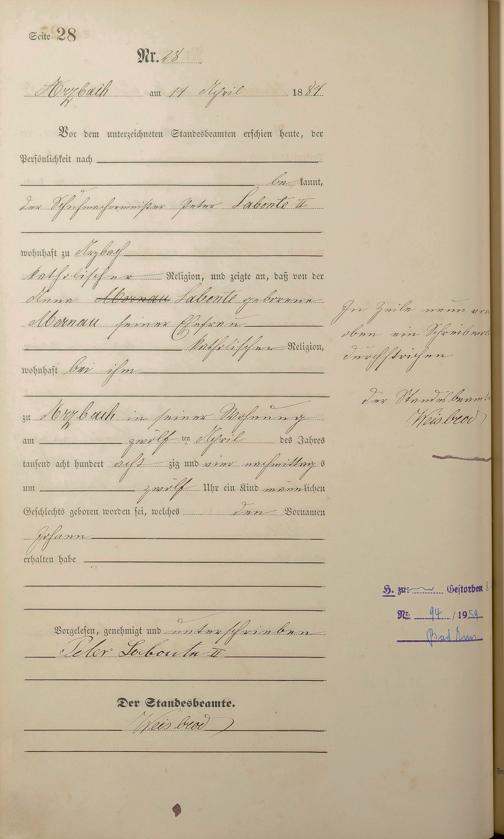 Seite 28
Nr. 28
Arzbach am 14 April 1884
Vor dem unterzeichneten Standesbeamten erschien heute, der
Persönlichkeit nach
be kannt,
der Schuhmachermeister Peter Labonte II
wohnhaft zu Arzbach
katholischer Religion, und zeigte an, daß von der
Anna Mernau Labonte geborene
Mernau seiner Ehefrau
katholischer Religion,
wohnhaft bei ihm
zu Arzbach in seiner Wohnung
am zwölf ten April des Jahres
tausend acht hundert acht zig und vier nachmittag s
um zwölf Uhr ein Kind männlichen
Geschlechts geboren worden sei, welches den Vornamen
Johann
erhalten habe
Vorgelesen, genehmigt und unterschrieben
Peter Labonte II
Der Standesbeamte.
Weisbrod
In Zeile neun von
oben ein
durchstrichen
der Standesbeam
Weisbrod
H. zu: Gestorben
Nr. 94 / 1959
Bad Ems